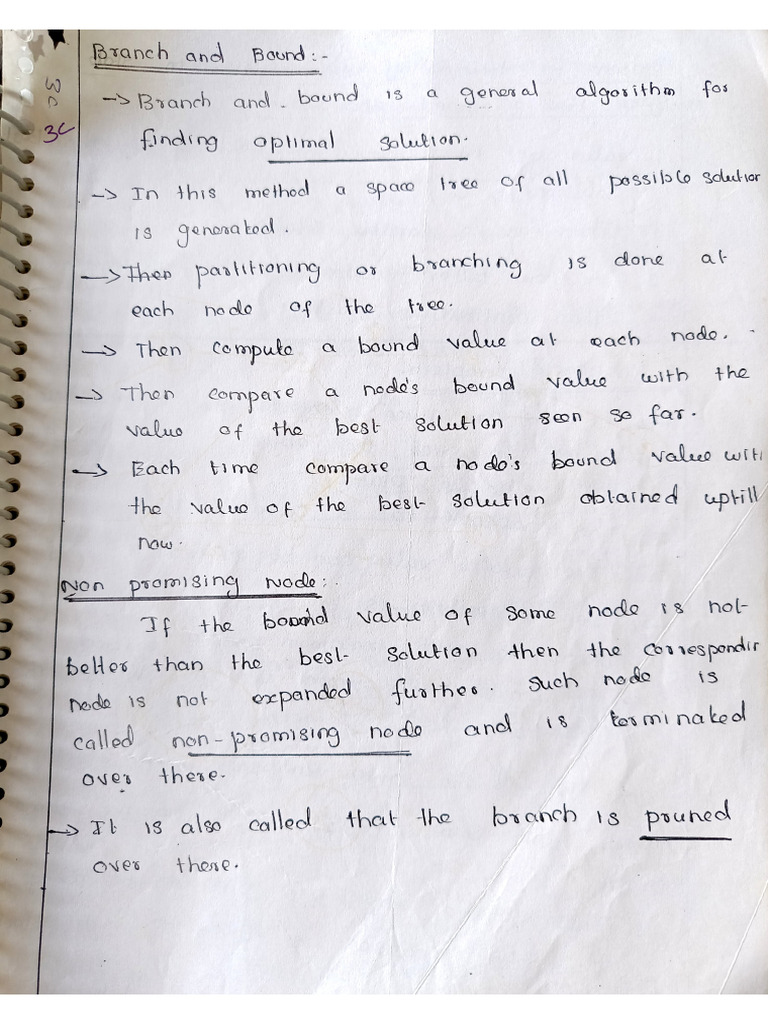 Branch and Bound:-
3c
3c
-> Branch and bound is a general algorithm for
finding optimal solution.
-> In this method a space tree of all possible solution
is generated.
-> Then partitioning or branching is done at
each node of the tree.
-> Then compute a bound value at each node.
-> Then compare a node's bound value with the
value of the best solution seen so far.
-> Each time compare a node's bound value with
the value of the best solution obtained uptill
now.
Non promising Node:
If the bound value of some node is not
better than the best solution then the correspondin
node is not expanded further. Such node is
called non-promising node and is terminated
over there.
-> It is also called that the branch is pruned
over there.